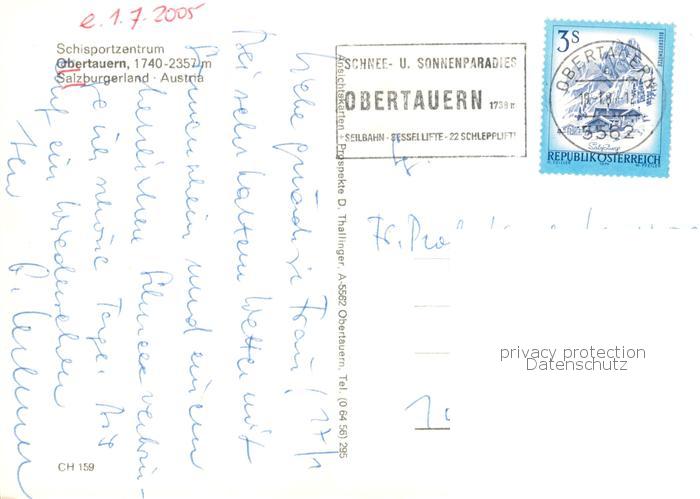 e. 1.7.2005
Schisportzentrum
Obertauern, 1740-2357 m
Salzburgerland · Austria
SCHNEE- U. SONNENPARADIES
OBERTAUERN 1738 m
SEILBAHN - SESSELLIFTE - 22 SCHLEPPLIFTE
3 S
OBERTAUERN
5562
REPUBLIK ÖSTERREICH
Ansichtskarten - Prospekte D. Thallinger, A-5562 Obertauern, Tel. (0 64 56) 295
Liebe gnädige Frau! 17/1
Bei sehr kaltem Wetter mit
Sonnenschein und einem
herrlichen
schöne Tage. Bis
auf ein Wiedersehen
Fr. Prof
privacy protection
Datenschutz
CH 159